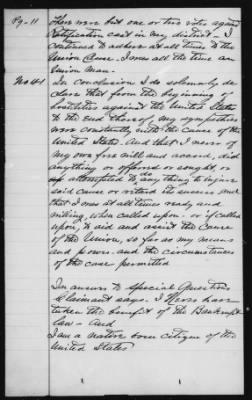 Pg-11
There were but one or two votes against
Ratification cast in my district - I
continued to adhere at all times to the
Union Cause. I was all the time an
Union man.
No 44 In conclusion I do solemnly de
clare that from the beginning of
hostilities against the United States
to the end thereof my sympathies
were constantly with the cause of the
United States. And that I never of
my own free will and accord, did
anything or offered or sought or
attempted to do anything to injure
said cause or retard its success and
that I was at all times ready and
willing, when called upon - or if called
upon, to aid and assist the Cause
of the Union, so far as my means
and power and the circumstances
of the case permitted
In answer to special Questions
Claimant says. I Never have
taken the benefit of the Bankrupt
law - And
I am a native born citizen of the
United States